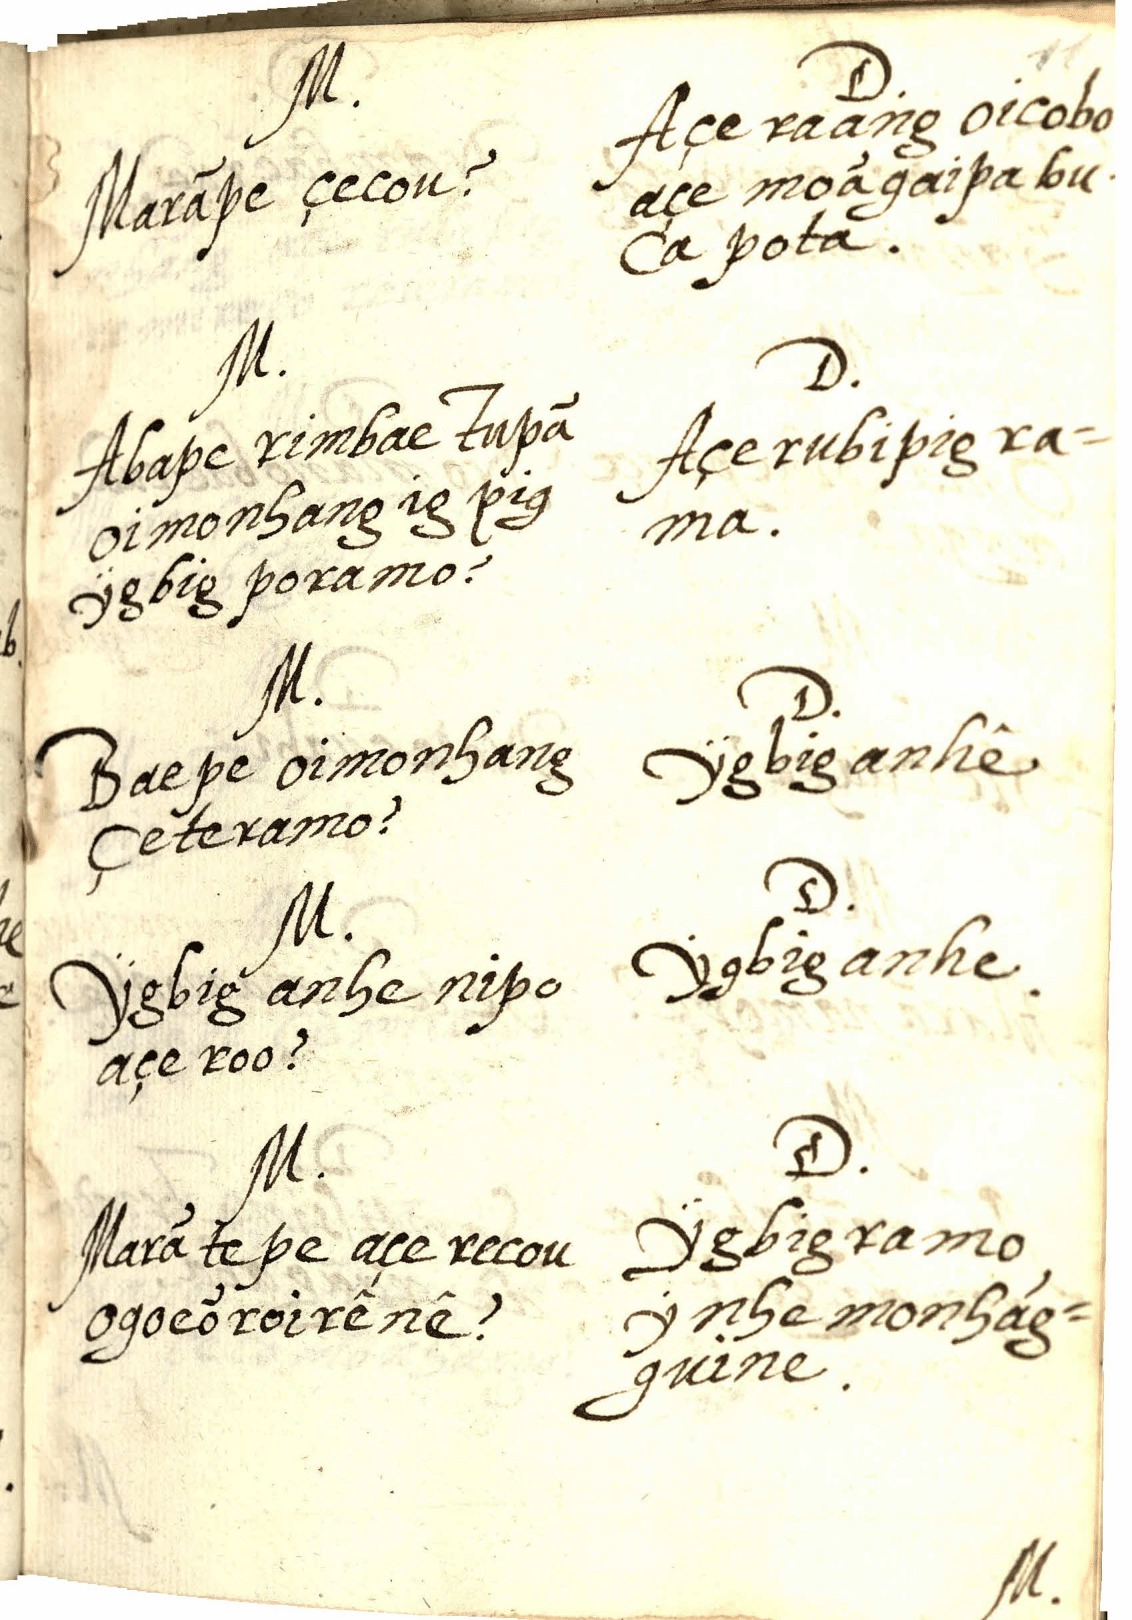 M.
Marãpe çecou?
D.
Açe raang oicobo
açe moãgaipa bu
Ca potã.
M.
Abape rimbae Tupã
oimonhang ig pig
ÿgbig poramo?
D.
Açe rubipig ra=
ma.
M.
Baepe oimonhang
Çeteramo?
D.
Ÿgbig anhê
M.
Ÿgbig anhe nipo
açe roo?
D.
Ÿgbig anhe.
M.
Marã te pe açe recou
ogoeõroirê nê?
D.
Ÿgbig ramo
ÿ nhe monhág=
guine.
M.